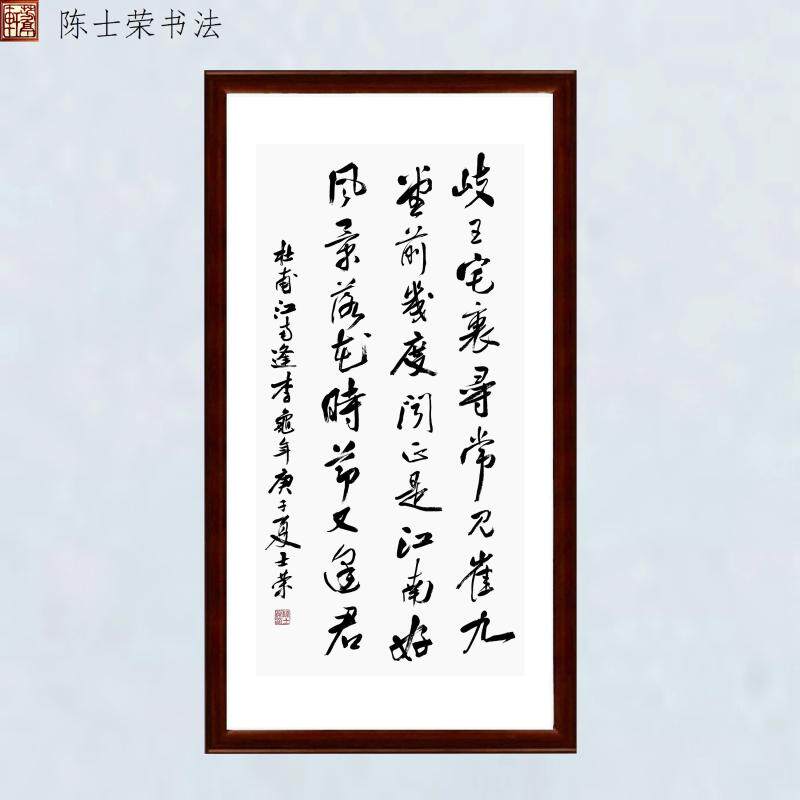 陈士荣书法
歧王宅裏尋常见崔九
堂前幾度闻正是江南好
风景落花時節又逢君
杜甫江南逢李龜年庚子夏士荣